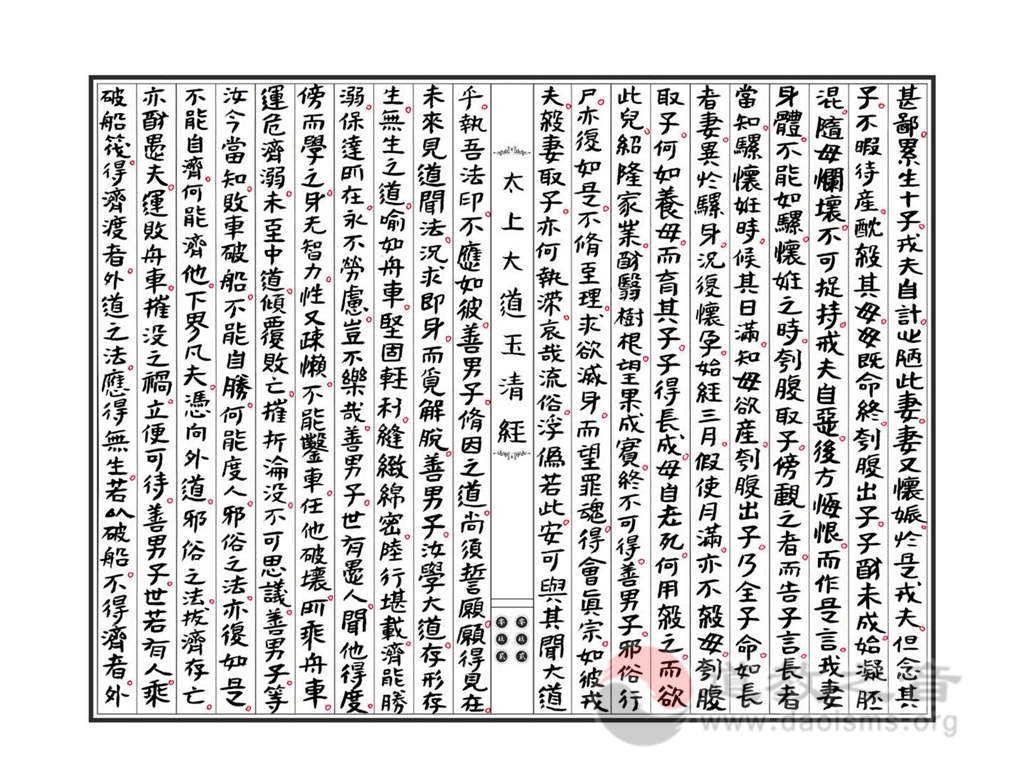 甚鄙累生十子戎夫自計心陋此妻妻又懷娠於是戎夫但念其
子不暇待產酖殺其母母既命終刳腹出子子酎未成始凝胚
混隨母爛壞不可捉持戎夫自惡後方悔恨而作是言我妻
身體不能如騾懷妊之時刳腹取子傍觀之者而告子言長者
當知騾懷妊時候其日滿知母欲產刳腹出子乃全子命如長
者妻異於騾身況復懷孕始經三月假使月滿亦不殺母刳腹
取子何如養母而育其子子得長成母自老死何用殺之而欲
此兒紹隆家業酎翳樹根望果成實終不可得善男子邪俗行
尸亦復如是不脩至理求欲滅身而望罪魂得會真宗如彼戎
夫殺妻取子亦何執滯哀哉流俗浮偽若此安可與其聞大道
太上大道玉清經
乎執吾法印不應如彼善男子脩因之道尚須誓願願得見在
未來見道聞法況求即身而覓解脫善男子汝學大道存形存
生無生之道喻如舟車堅固輕利縫緻綿密陸行堪載濟能勝
溺保達所在永不勞慮豈不樂哉善男子世有愚人聞他得度
傍而學之身无智力性又疎懶不能鑿車任他破壞所乘舟車
運危濟溺未至中道傾覆敗亡摧折淪沒不可思議善男子等
汝今當知敗車破船不能自勝何能度人邪俗之法亦復如是
不能自濟何能濟他下界凡夫憑向外道邪俗之法拔濟存亡
亦酎愚夫運敗舟車摧沒之禍立便可待善男子世若有人乘
破船筏得濟渡者外道之法應得無生若以破船不得濟者外
道教之音
www.daoisms.org